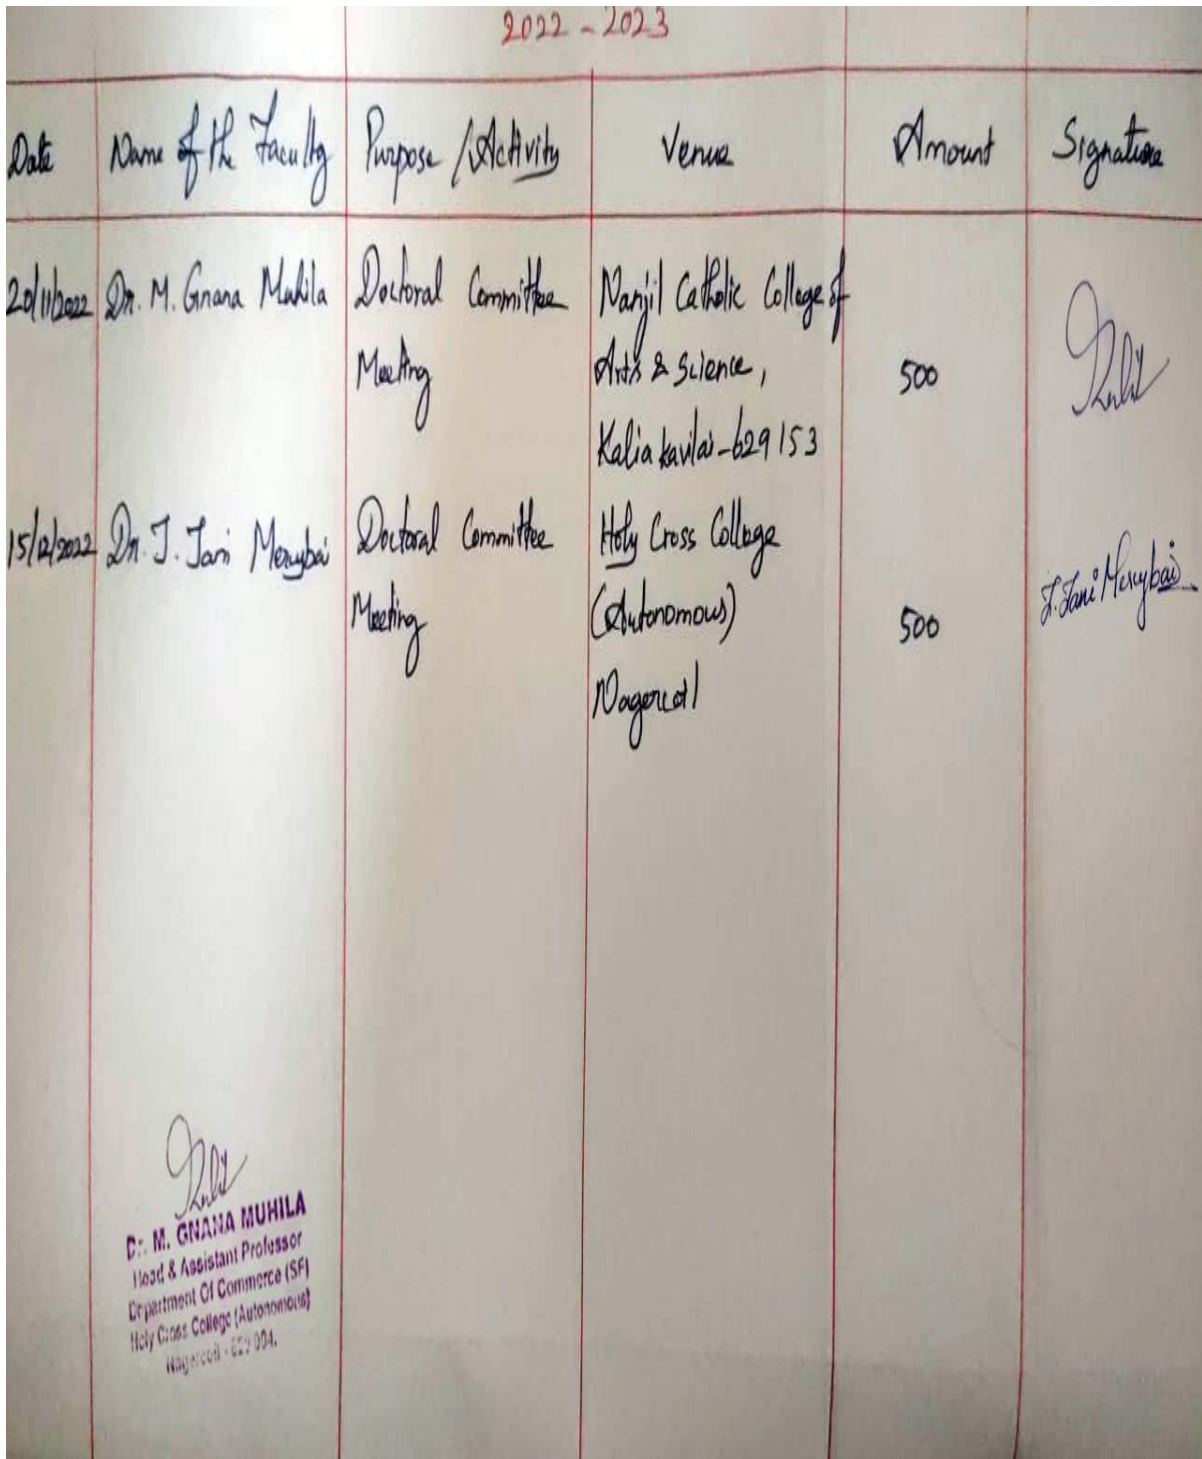 2022 - 2023
Date Name of the Faculty Purpose / Activity Venue Amount Signature
20/11/2022 Dr. M. Gnana Muhila Doctoral Committee Nanjil Catholic College of
Meeting Arts & Science, 500
Kaliakavilai - 629 153
15/12/2022 Dr. J. Jani Mercybai Doctoral Committee Holy Cross College
Meeting (Autonomous) 500 J. Jani Mercybai
Nagercoil
Dr. M. GNANA MUHILA
Head & Assistant Professor
Department Of Commerce (SF)
Holy Cross College (Autonomous)
Nagercoil - 629 004.